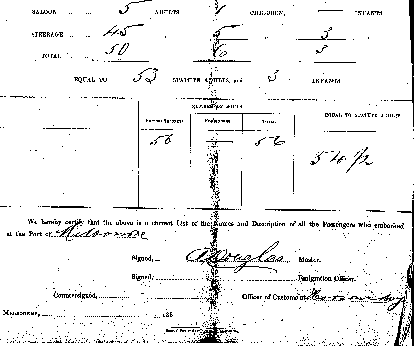 SALOON 5 ADULTS 1 CHILDREN, — INFANTS
STEERAGE 45 5 3
TOTAL 50 6 3
EQUAL TO 53 STATUTE ADULTS, and 3 INFANTS
NUMBER OF SOULS
EQUAL TO STATUTE ADULTS
Total
56 — 56
54 1/2
We hereby certify that the above is a correct List of the Names and Description of all the Passengers who embarked
at the Port of Melbourne
Signed, A Douglas Master.
Signed, Emigration Officer.
Countersigned, Officer of Customs at
MELBOURNE, 188